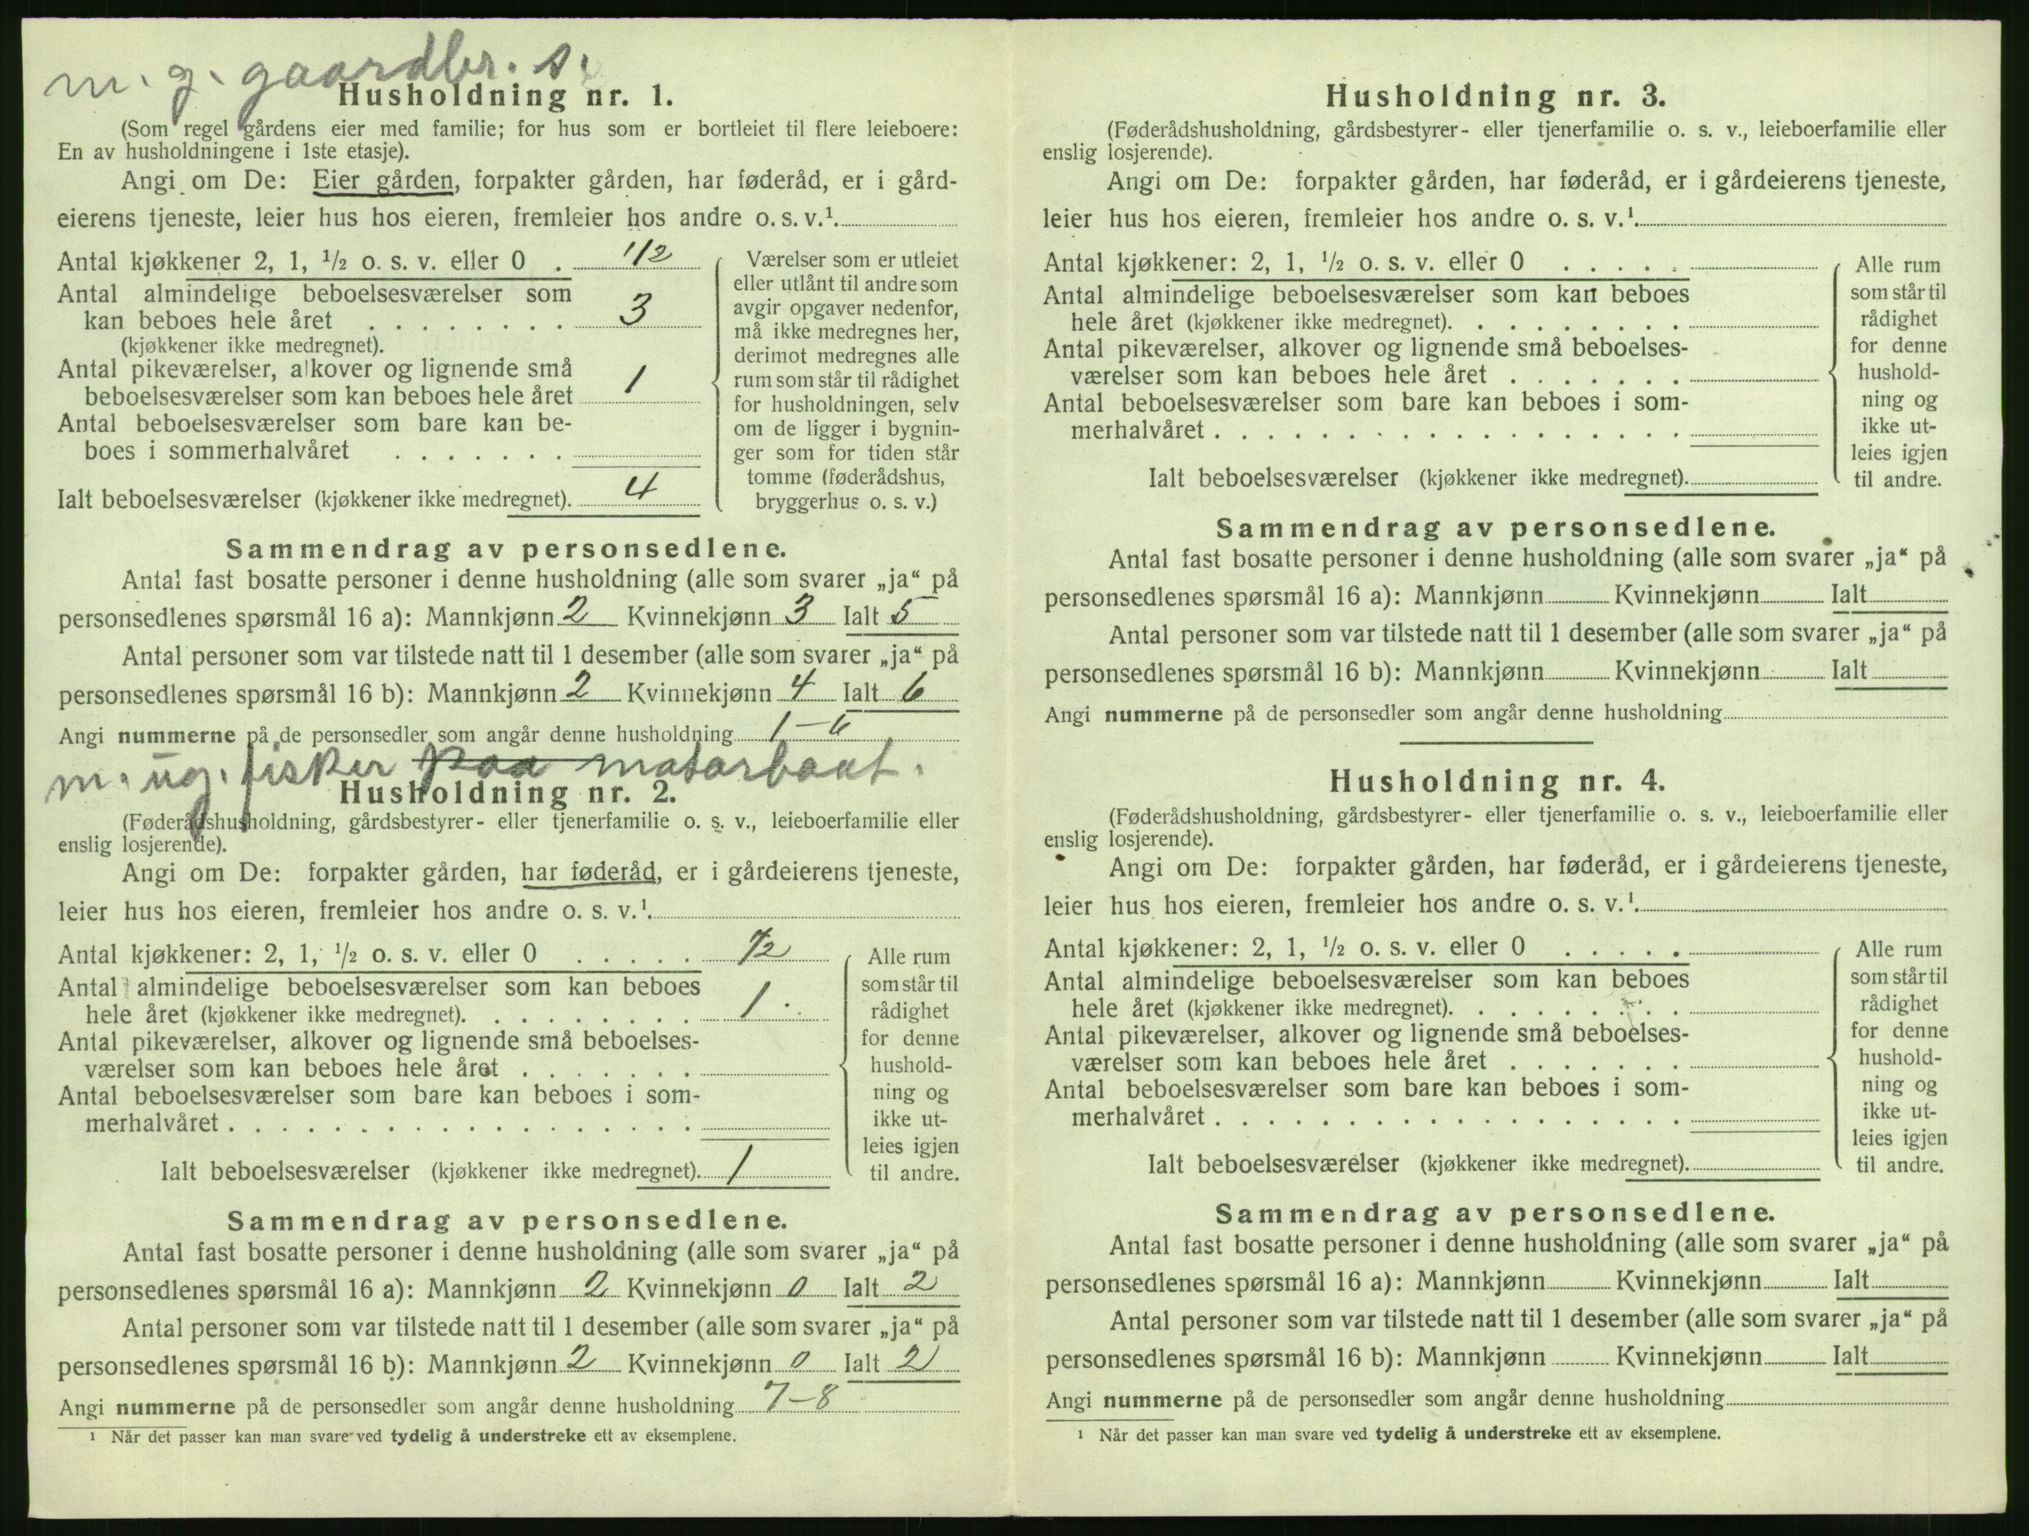 m. g. gaardbr. s.
Husholdning nr. 1.
(Som regel gårdens eier med familie; for hus som er bortleiet til flere leieboere:
En av husholdningene i 1ste etasje).
Angi om De: Eier gården, forpakter gården, har føderåd, er i gård-
eierens tjeneste, leier hus hos eieren, fremleier hos andre o. s. v.¹.
Antal kjøkkener 2, 1, ½ o. s. v. eller 0 . 1/2
Antal almindelige beboelsesværelser som
kan beboes hele året . . . . . . . . 3
(kjøkkener ikke medregnet).
Antal pikeværelser, alkover og lignende små
beboelsesværelser som kan beboes hele året 1
Antal beboelsesværelser som bare kan be-
boes i sommerhalvåret . . . . . . .
Ialt beboelsesværelser (kjøkkener ikke medregnet). 4
Værelser som er utleiet
eller utlånt til andre som
avgir opgaver nedenfor,
må ikke medregnes her,
derimot medregnes alle
rum som står til rådighet
for husholdningen, selv
om de ligger i bygnin-
ger som for tiden står
tomme (føderådshus,
bryggerhus o. s. v.)
Sammendrag av personsedlene.
Antal fast bosatte personer i denne husholdning (alle som svarer „ja“ på
personsedlenes spørsmål 16 a): Mannkjønn 2 Kvinnekjønn 3 Ialt 5
Antal personer som var tilstede natt til 1 desember (alle som svarer „ja“ på
personsedlenes spørsmål 16 b): Mannkjønn 2 Kvinnekjønn 4 Ialt 6
Angi nummerne på de personsedler som angår denne husholdning 1-6
m. ug. fisker paa motorbaat.
Husholdning nr. 2.
(Føderådshusholdning, gårdsbestyrer- eller tjenerfamilie o. s. v., leieboerfamilie eller
enslig losjerende).
Angi om De: forpakter gården, har føderåd, er i gårdeierens tjeneste,
leier hus hos eieren, fremleier hos andre o. s. v.¹.
Antal kjøkkener: 2, 1, ½ o. s. v. eller 0 . . . . . 1/2
Antal almindelige beboelsesværelser som kan beboes
hele året (kjøkkener ikke medregnet). . . . . . . . . 1
Antal pikeværelser, alkover og lignende små beboelses-
værelser som kan beboes hele året . . . . . . .
Antal beboelsesværelser som bare kan beboes i som-
merhalvåret . . . . . . . . . . . . . . . . . .
Ialt beboelsesværelser (kjøkkener ikke medregnet). 1
Alle rum
som står til
rådighet
for denne
hushold-
ning og
ikke ut-
leies igjen
til andre.
Sammendrag av personsedlene.
Antal fast bosatte personer i denne husholdning (alle som svarer „ja“ på
personsedlenes spørsmål 16 a): Mannkjønn 2 Kvinnekjønn 0 Ialt 2
Antal personer som var tilstede natt til 1 desember (alle som svarer „ja“ på
personsedlenes spørsmål 16 b): Mannkjønn 2 Kvinnekjønn 0 Ialt 2
Angi nummerne på de personsedler som angår denne husholdning 7-8
¹ Når det passer kan man svare ved tydelig å understreke ett av eksemplene.
Husholdning nr. 3.
(Føderådshusholdning, gårdsbestyrer- eller tjenerfamilie o. s. v., leieboerfamilie eller
enslig losjerende).
Angi om De: forpakter gården, har føderåd, er i gårdeierens tjeneste,
leier hus hos eieren, fremleier hos andre o. s. v.¹.
Antal kjøkkener: 2, 1, ½ o. s. v. eller 0 . . . . .
Antal almindelige beboelsesværelser som kan beboes
hele året (kjøkkener ikke medregnet). . . . . . . . .
Antal pikeværelser, alkover og lignende små beboelses-
værelser som kan beboes hele året . . . . . . .
Antal beboelsesværelser som bare kan beboes i som-
merhalvåret . . . . . . . . . . . . . . . . . .
Ialt beboelsesværelser (kjøkkener ikke medregnet).
Alle rum
som står til
rådighet
for denne
hushold-
ning og
ikke ut-
leies igjen
til andre.
Sammendrag av personsedlene.
Antal fast bosatte personer i denne husholdning (alle som svarer „ja“ på
personsedlenes spørsmål 16 a): Mannkjønn Kvinnekjønn Ialt
Antal personer som var tilstede natt til 1 desember (alle som svarer „ja“ på
personsedlenes spørsmål 16 b): Mannkjønn Kvinnekjønn Ialt
Angi nummerne på de personsedler som angår denne husholdning
Husholdning nr. 4.
(Føderådshusholdning, gårdsbestyrer- eller tjenerfamilie o. s. v., leieboerfamilie eller
enslig losjerende).
Angi om De: forpakter gården, har føderåd, er i gårdeierens tjeneste,
leier hus hos eieren, fremleier hos andre o. s. v.¹.
Antal kjøkkener: 2, 1, ½ o. s. v. eller 0 . . . . .
Antal almindelige beboelsesværelser som kan beboes
hele året (kjøkkener ikke medregnet). . . . . . . . .
Antal pikeværelser, alkover og lignende små beboelses-
værelser som kan beboes hele året . . . . . . .
Antal beboelsesværelser som bare kan beboes i som-
merhalvåret . . . . . . . . . . . . . . . . . .
Ialt beboelsesværelser (kjøkkener ikke medregnet).
Alle rum
som står til
rådighet
for denne
hushold-
ning og
ikke ut-
leies igjen
til andre.
Sammendrag av personsedlene.
Antal fast bosatte personer i denne husholdning (alle som svarer „ja“ på
personsedlenes spørsmål 16 a): Mannkjønn Kvinnekjønn Ialt
Antal personer som var tilstede natt til 1 desember (alle som svarer „ja“ på
personsedlenes spørsmål 16 b): Mannkjønn Kvinnekjønn Ialt
Angi nummerne på de personsedler som angår denne husholdning
¹ Når det passer kan man svare ved tydelig å understreke ett av eksemplene.